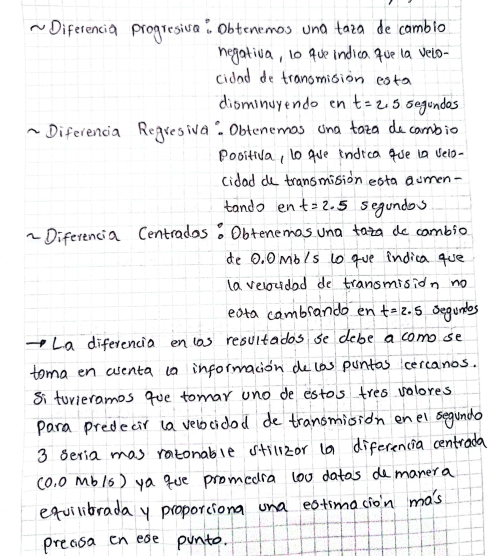 ~ Diferencia progresiva: Obtenemos una taza de cambio
negativa, lo que indica que la velo-
cidad de transmición esta
disminuyendo en t = 2.5 segundos
~ Diferencia Regresiva: Obtenemos una taza de cambio
Positiva, lo que indica que la velo-
cidad de transmisión esta aumen-
tando en t = 2.5 segundos
~ Diferencia Centradas: Obtenemos una taza de cambio
de 0.0 Mb/s lo que indica que
la velocidad de transmisión no
esta cambiando en t = 2.5 segundos
→ La diferencia en los resultados se debe a como se
toma en cuenta la información de los puntos cercanos.
Si tuvieramos que tomar uno de estos tres valores
para predecir la velocidad de transmisión en el segundo
3 seria mas razonable utilizar la diferencia centrada
(0.0 Mb/s) ya que promedia los datos de manera
equilibrada y proporciona una estimación más
precisa en ese punto.